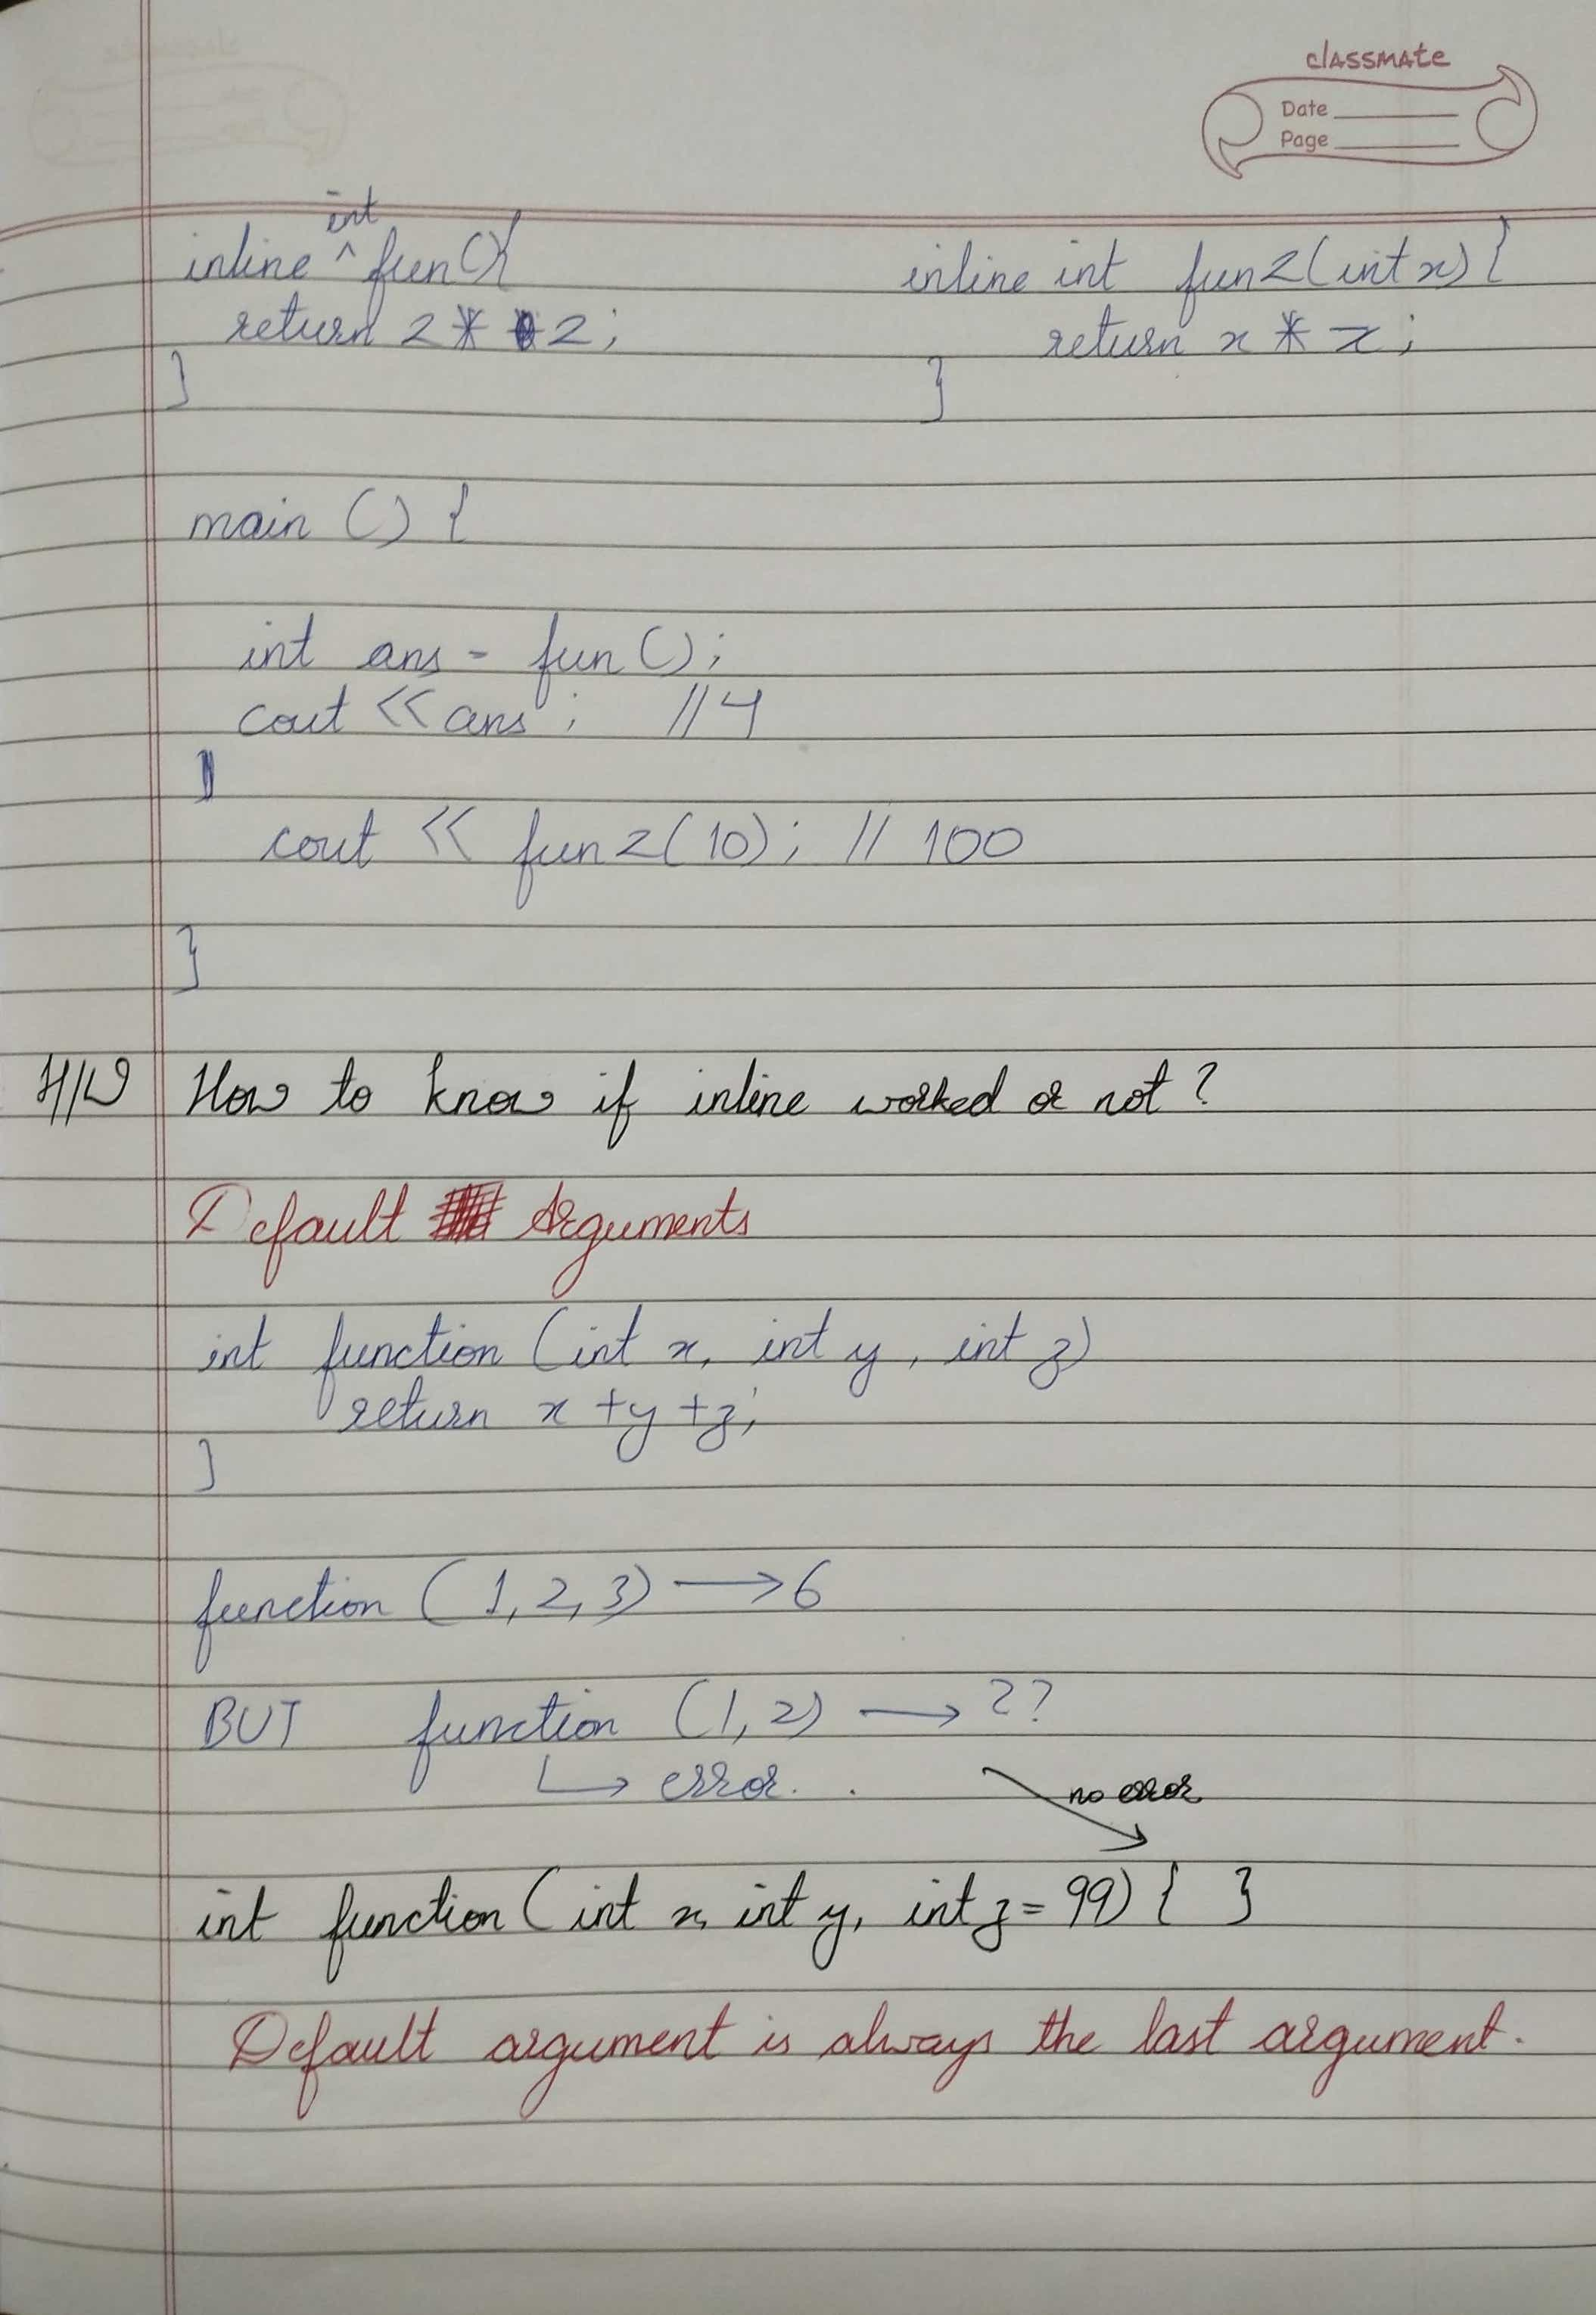 classmate
Date
Page
inline int fun(){
return 2 * 2;
}
inline int fun2(int x) {
return x * x;
}
main () {
int ans = fun ();
cout << ans ; // 4
cout << fun2(10); // 100
}
H/W How to know if inline worked or not ?
Default Arguments
int function (int x, int y, int z)
return x + y + z;
}
function (1, 2, 3) → 6
BUT function (1, 2) → ??
↳ error.
no error
int function (int x, int y, int z = 99) { }
Default argument is always the last argument.